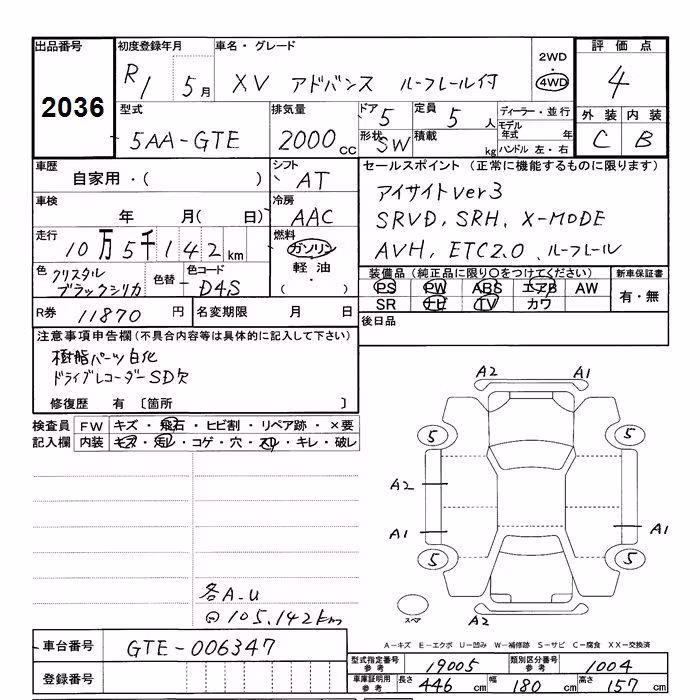 出品番号 初度登録年月 車名・グレード 2WD・4WD 評価点
2036 R1 5月 XV アドバンス ルーフレール付 4
型式 排気量 ドア 5 定員 5人 ディーラー・並行 外装 内装
5AA-GTE 2000cc 形状 SW 積載 kg モデル年式 年 ハンドル 左・右 C B
車歴 シフト セールスポイント(正常に機能するものに限ります)
自家用・( ) AT アイサイトver3
車検 冷房 SRVD, SRH, X-MODE
年 月( 日) AAC AVH, ETC2.0, ルーフレール
走行 燃料
10万5千142km ガソリン
軽油
・( )
色 クリスタルブラックシリカ 色替 色コード D4S
装備品(純正品に限り〇をつけてください) 新車保証書
PS PW ABS エアB AW 有・無
SR ナビ TV カワ
R券 11870円 名変期限 月 日 後日品
注意事項申告欄(不具合内容等は具体的に記入して下さい)
樹脂パーツ白化
ドライブレコーダーSD欠
修復歴 有〔箇所 〕
検査員 FW キズ・飛石・ヒビ割・リペア跡・×要
記入欄 内装 キズ・汚レ・コゲ・穴・スレ・キレ・破レ
A2 A1
5 5
A2
A1 A1
5 5
スペア
A2
各A.U
105,142km
A-キズ E-エクボ U-凹み W-補修跡 S-サビ C-腐食 XX-交換済
車台番号 GTE-006347
型式指定番号 参考 19005 類別区分番号 参考 1004
登録番号
車庫証明用 参考 長さ 446cm 幅 180cm 高さ 157cm